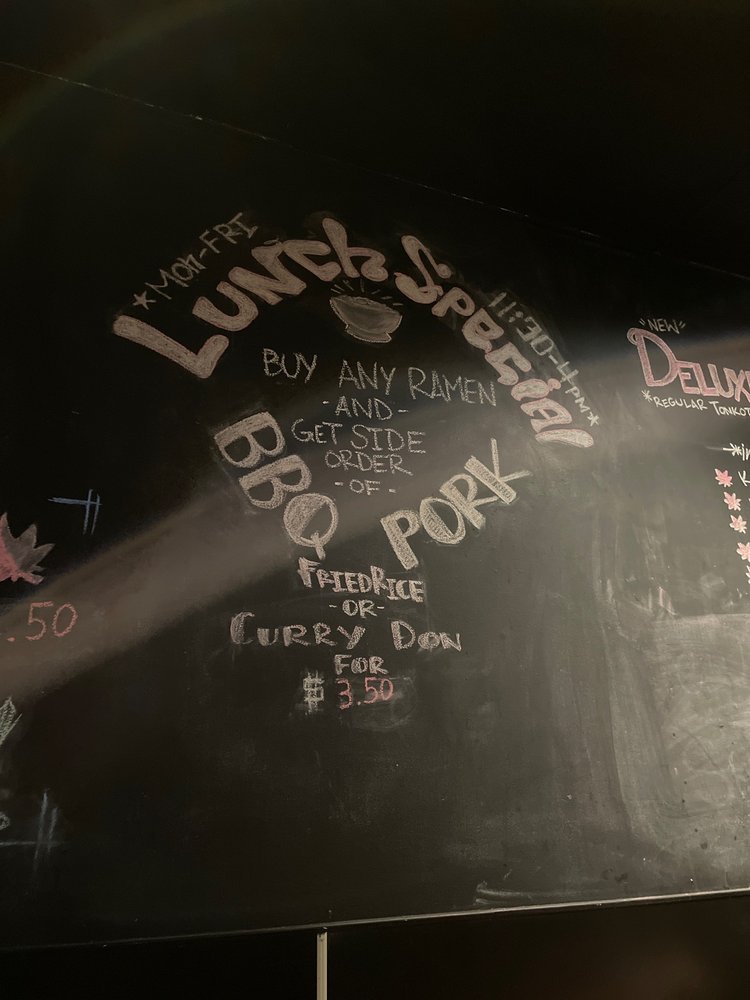 *Mon-FRI
Lunch Special
11:30-4PM*
BUY ANY RAMEN
-AND-
GET SIDE
ORDER
-OF-
BBQ PORK
FRIED RICE
-OR-
CURRY DON
FOR
$3.50
.50
"NEW"
DELUX
*REGULAR TONKOT